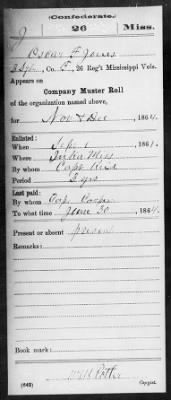 Confederate.
J 26 Miss.
Oscar F Jones
2 Sgt, Co. F, 26 Reg't Mississippi Vols.
Appears on
Company Muster Roll
of the organization named above,
for Nov & Dec, 1864.
Enlisted:
When Sept 1, 1861.
Where Iuka Miss
By whom Capt Reid
Period 3 yrs
Last paid:
By whom Capt
To what time June 30, 1864.
Present or absent present
Remarks:
Book mark:
(642) Copyist.